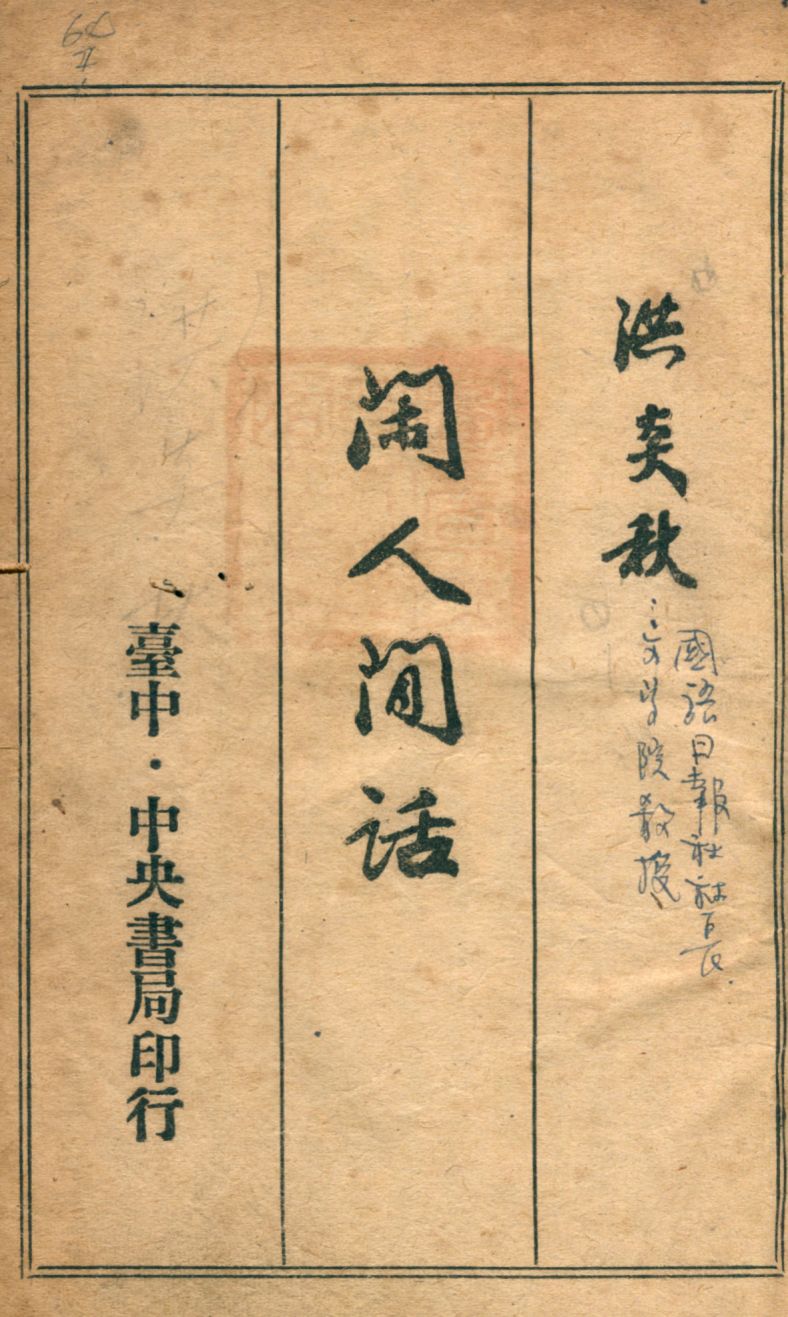 洪炎秋
國語日報社社長
文学院教授
閑人閒话
臺中·中央書局印行